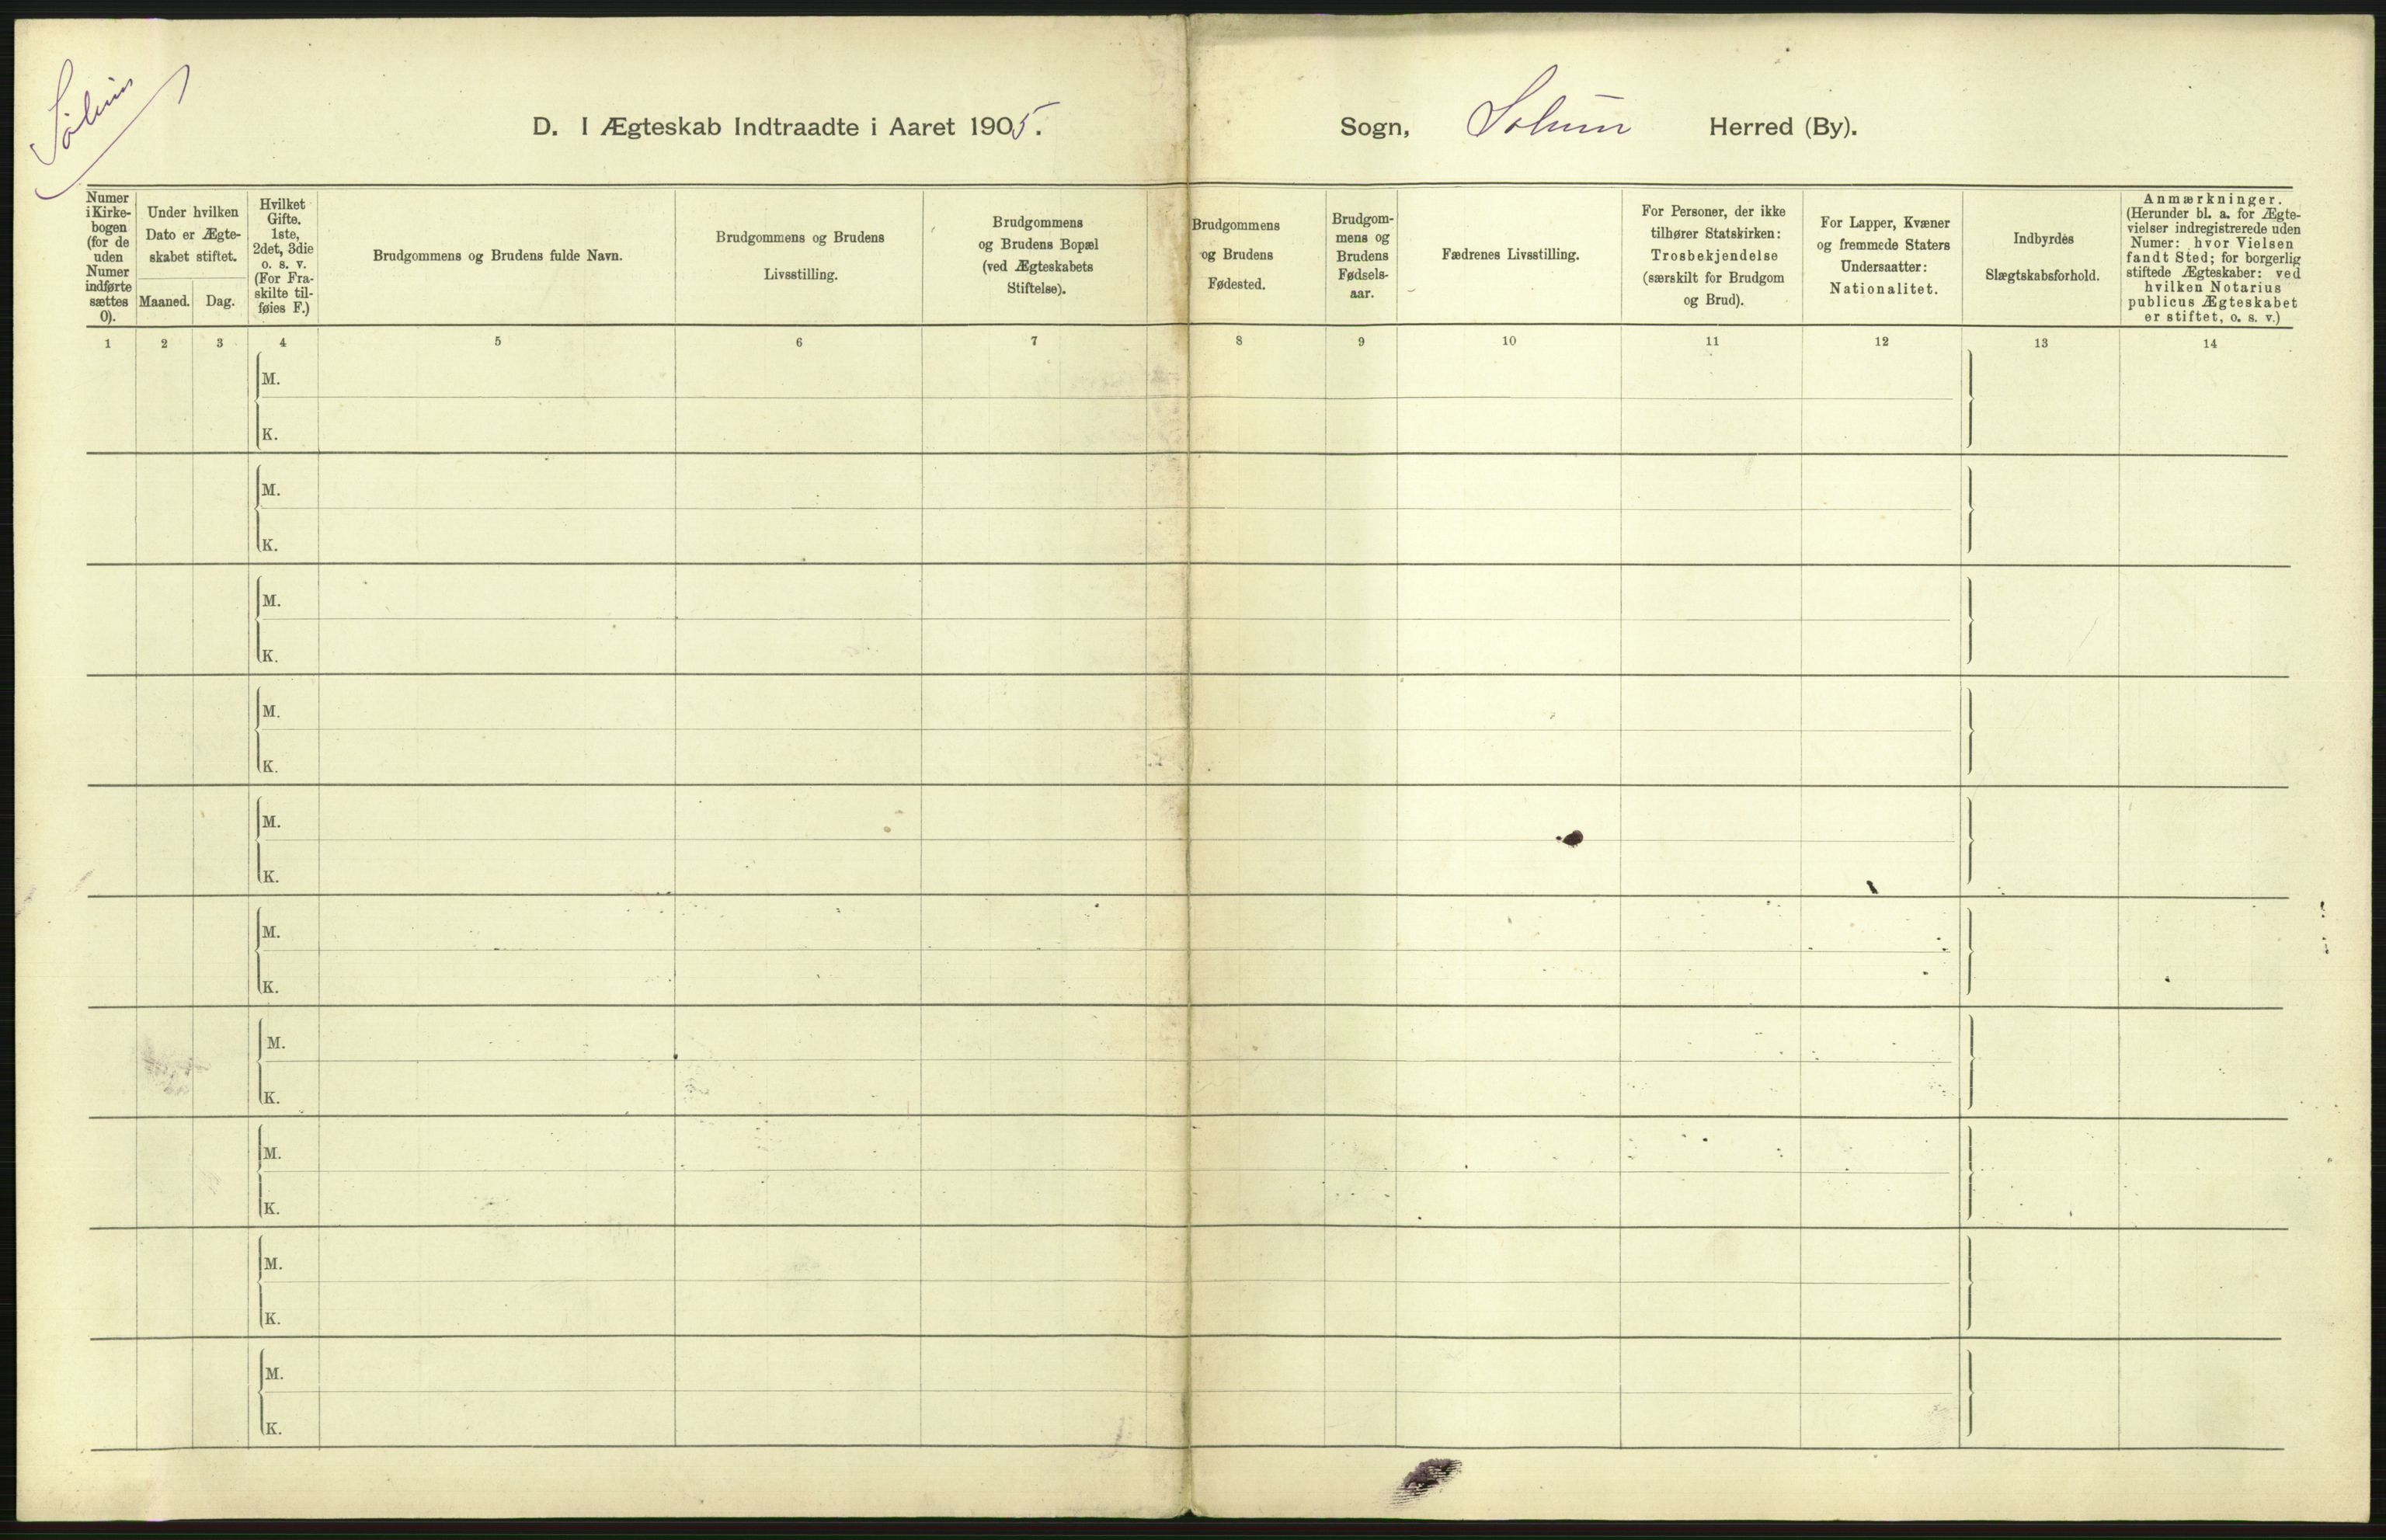 Solum
D. I Ægteskab Indtraadte i Aaret 1905.
Sogn, Solum Herred (By).
Numer
i Kirke-
bogen
(for de
uden
Numer
indførte
sættes
0).
Under hvilken
Dato er Ægte-
skabet stiftet.
Maaned. Dag.
Hvilket
Gifte.
1ste,
2det, 3die
o. s. v.
(For Fra-
skilte til-
føies F.)
Brudgommens og Brudens fulde Navn.
Brudgommens og Brudens
Livsstilling.
Brudgommens
og Brudens Bopæl
(ved Ægteskabets
Stiftelse).
Brudgommens
og Brudens
Fødested.
Brudgom-
mens og
Brudens
Fødsels-
aar.
Fædrenes Livsstilling.
For Personer, der ikke
tilhører Statskirken:
Trosbekjendelse
(særskilt for Brudgom
og Brud).
For Lapper, Kvæner
og fremmede Staters
Undersaatter:
Nationalitet.
Indbyrdes
Slægtskabsforhold.
Anmærkninger.
(Herunder bl. a. for Ægte-
vielser indregistrerede uden
Numer: hvor Vielsen
fandt Sted; for borgerlig
stiftede Ægteskaber: ved
hvilken Notarius
publicus Ægteskabet
er stiftet, o. s. v.)
1 2 3 4 5 6 7 8 9 10 11 12 13 14
M.
K.
M.
K.
M.
K.
M.
K.
M.
K.
M.
K.
M.
K.
M.
K.
M.
K.
M.
K.